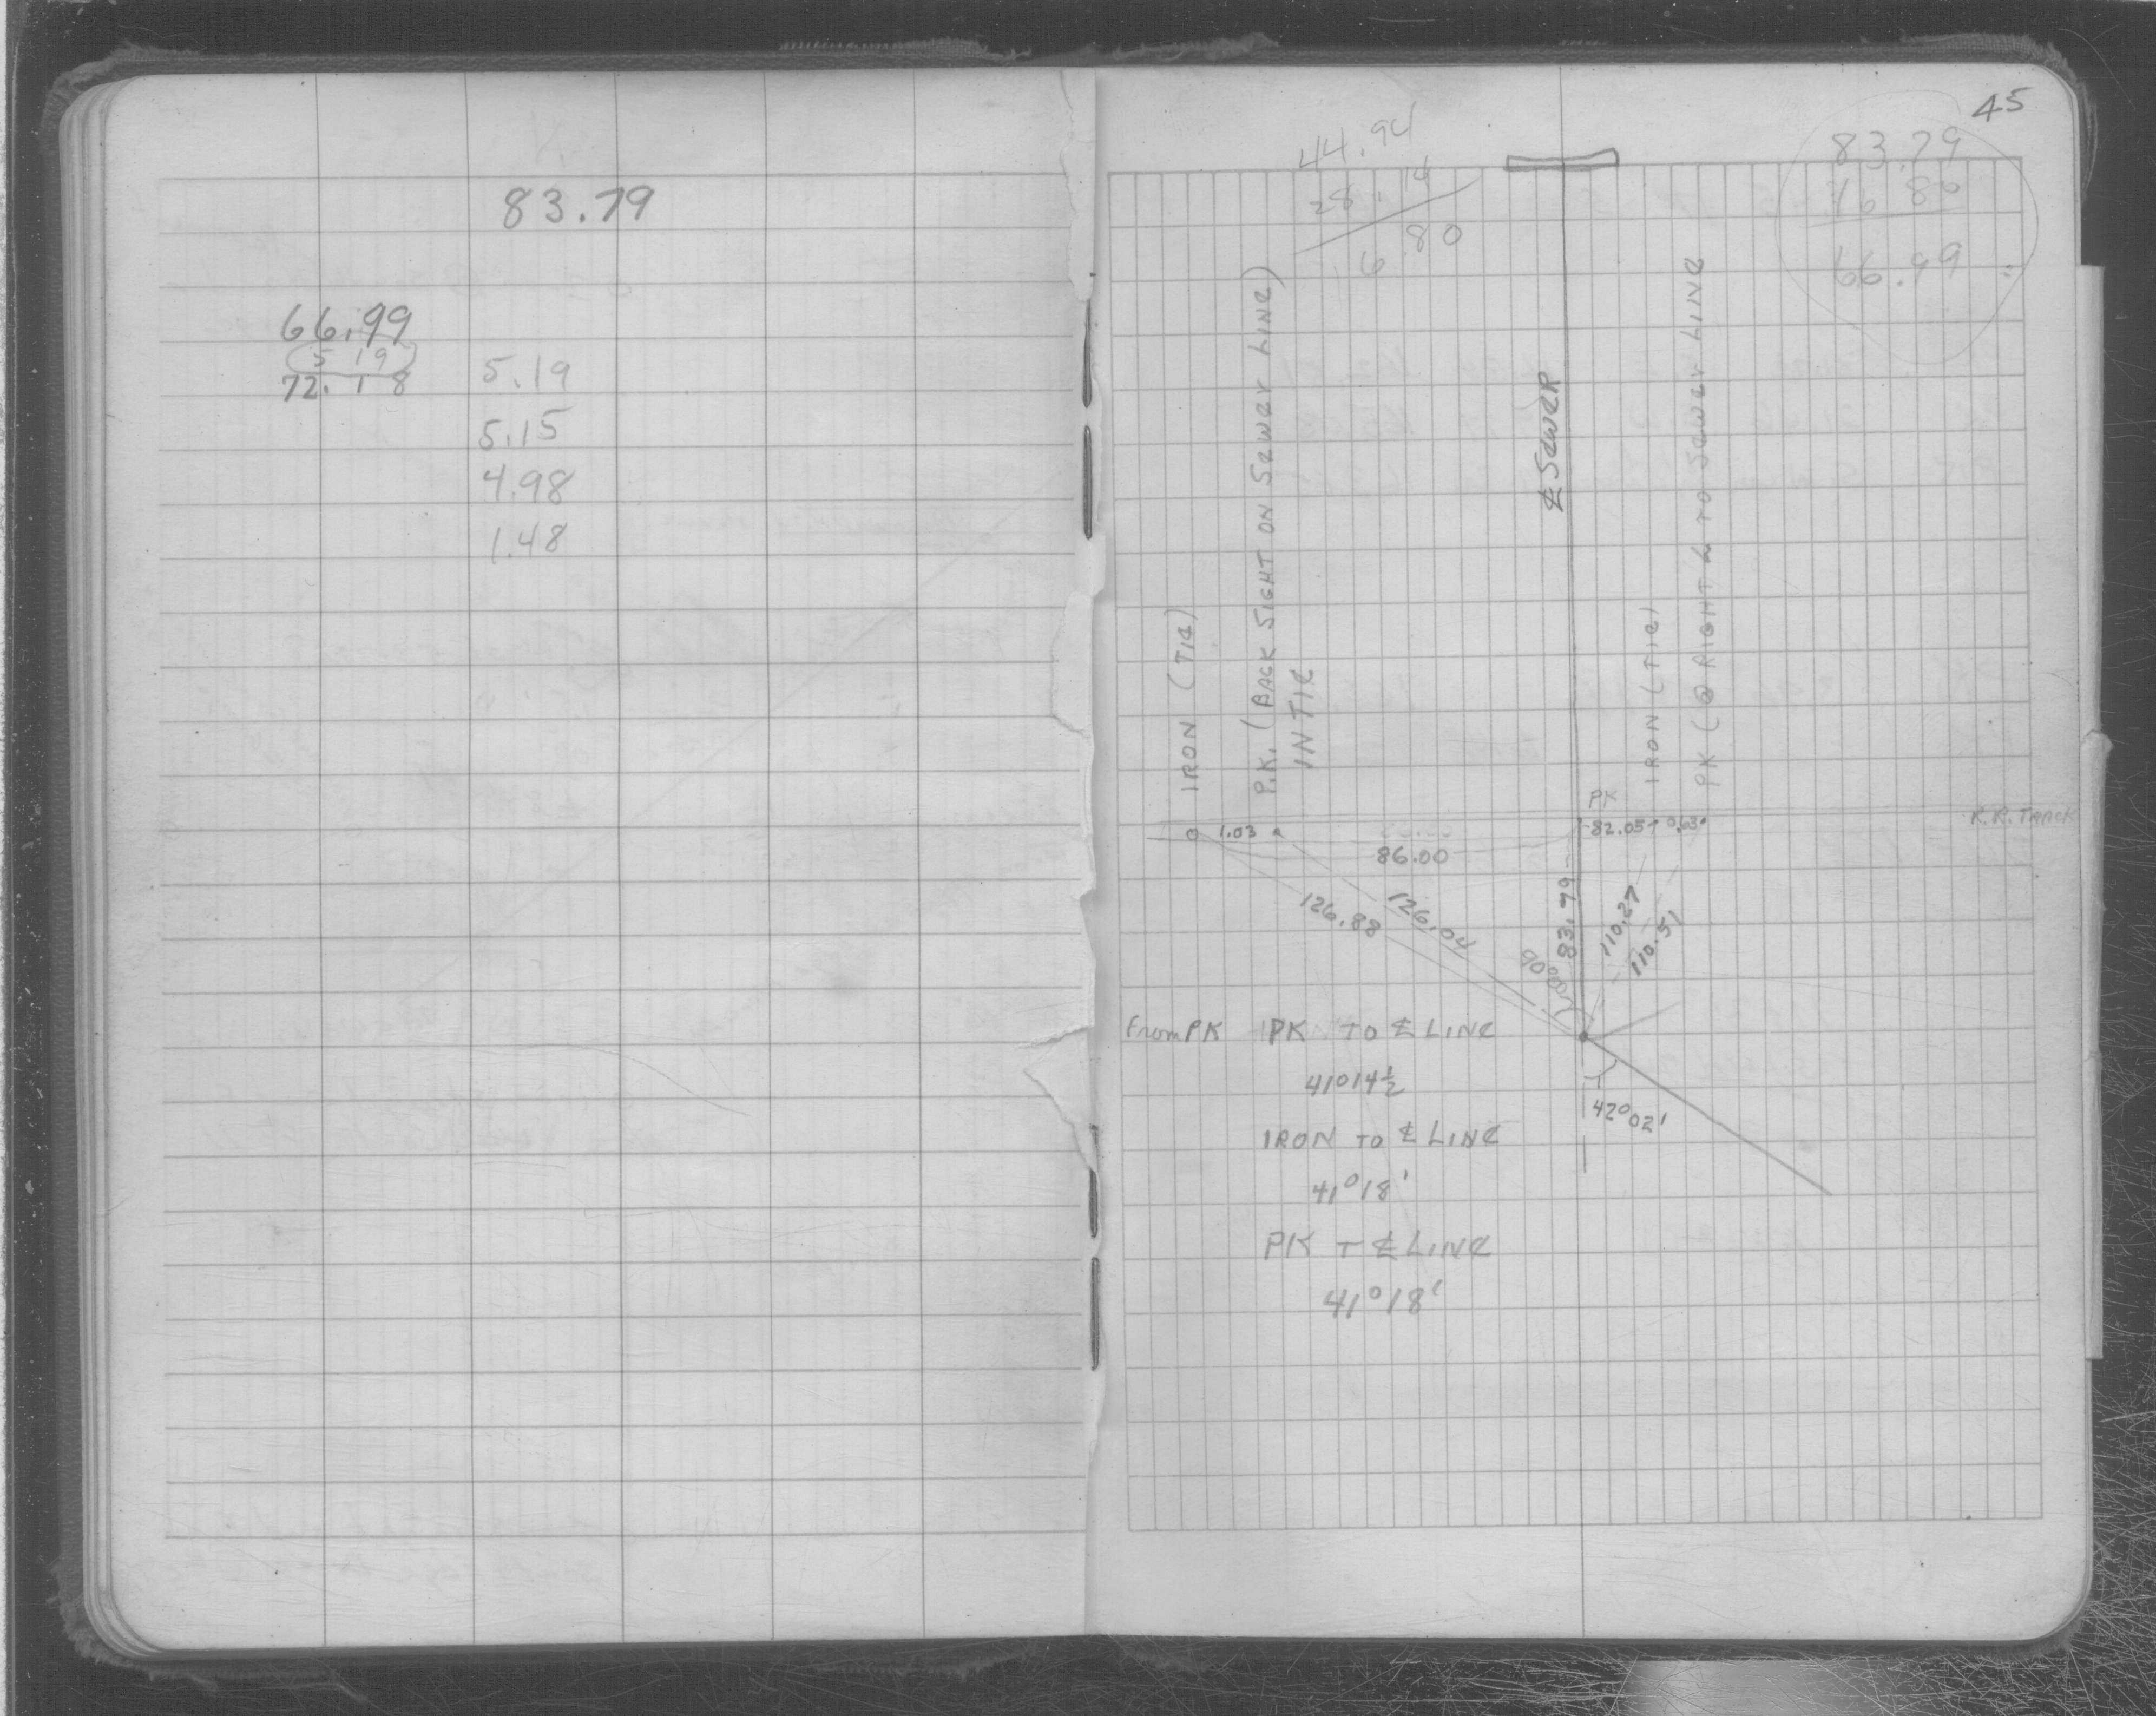 83.79
66.99
5 19
72.18
5.19
5.15
4.98
1.48
45
44.94
28.14
16.80
83.79
16 80
66.99
IRON (TIE)
P.K. (BACK SIGHT ON SEWER LINE)
IN TIE
℄ SEWER
IRON (TIE)
PK (@ RIGHT ∠ TO SEWER LINE
PK
R.R. TRACK
1.03
86.00
82.05
0.63
126.88
126.04
83.79
110.27
110.51
From PK PK TO ℄ LINE
41°14½
42°02'
IRON TO ℄ LINE
41°18'
PK T ℄ LINE
41°18'